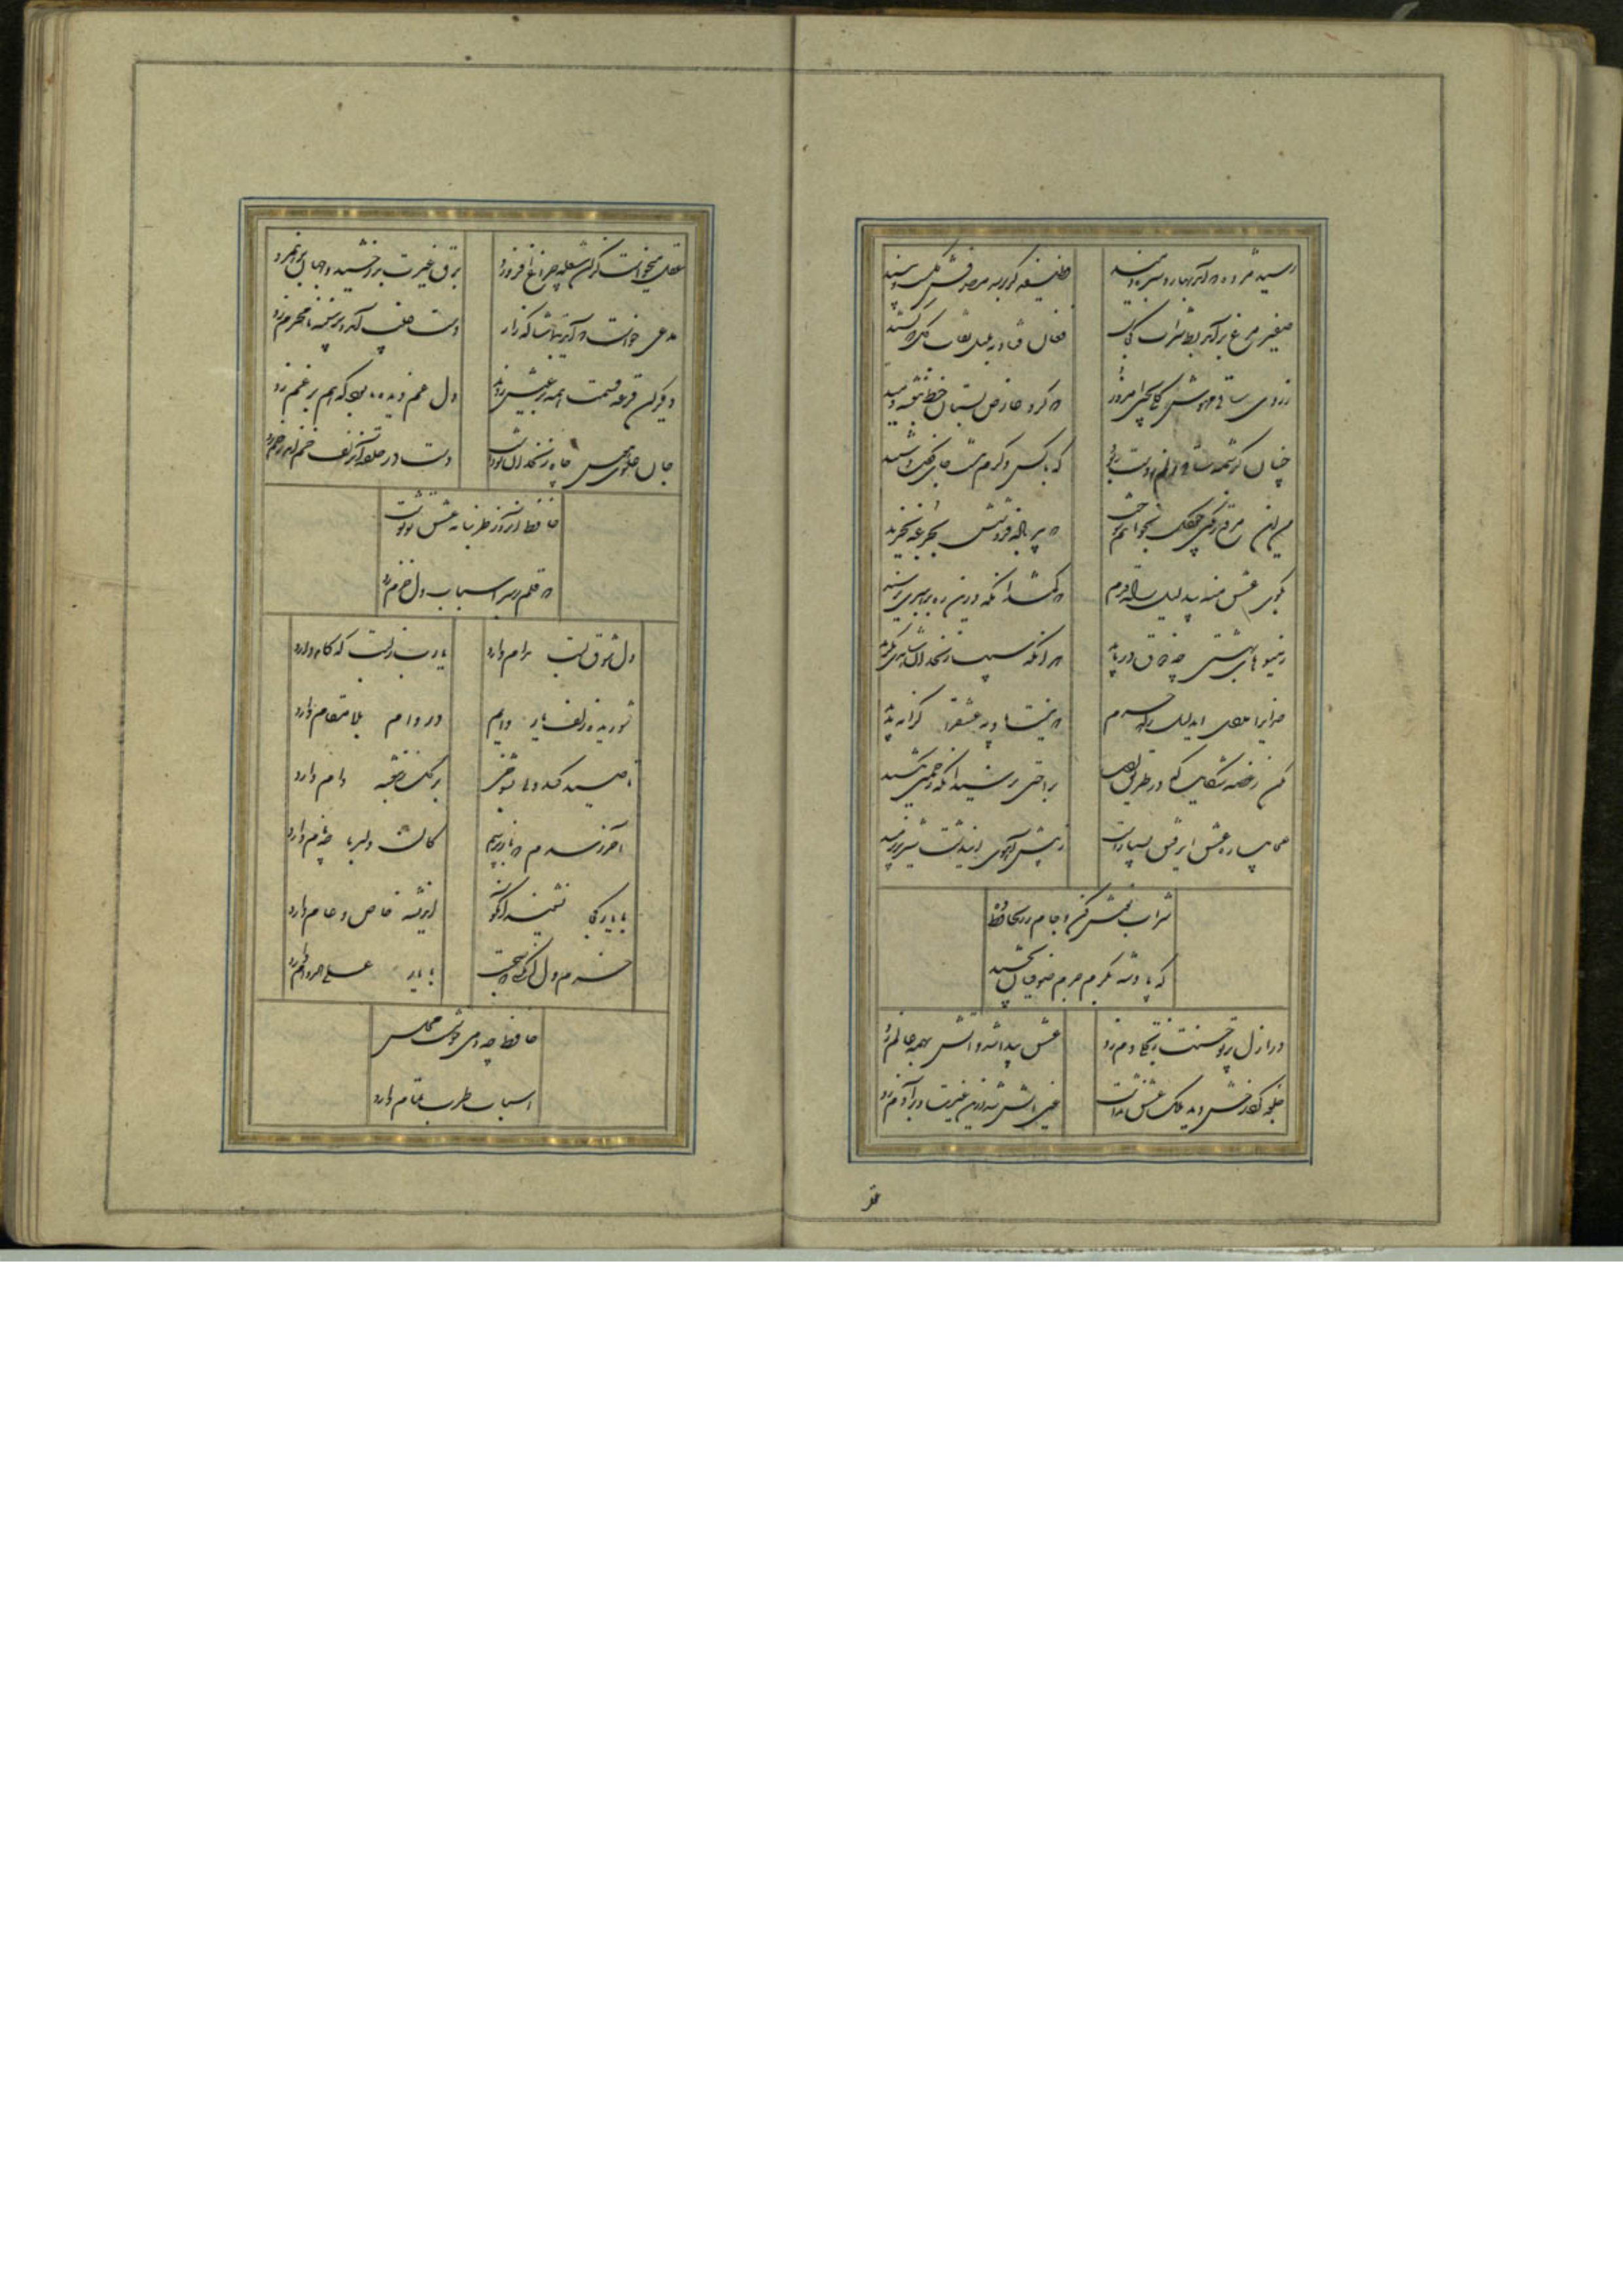 رسید مژده که آمد بهار و سبزه دمید وظیفه گر برسد مصرفش گلست و نبید
صفیر مرغ برآمد بط شراب کجاست فغان فتاد به بلبل نقاب گل که کشید
ز روی ساقی مهوش گلی بچین امروز که گرد عارض بستان خط بنفشه دمید
چنان کرشمه ساقی دلم ز دست ببرد که با کسی دگرم نیست جای گفت و شنید
من این مرقع رنگین چو گل بخواهم سوخت که پیر باده فروشش بجرعه نخرید
بکوی عشق منه بی دلیل راه قدم که گم شد آنکه درین ره برهبری نرسید
ز میوهای بهشتی چه ذوق دریابد هر آنکه سیب زنخدان شاهدی نگزید
خدایرا مددی ای دلیل راه حرم که نیست بادیه عشق را کرانه پدید
مکن ز غصه شکایت که در طریق طلب براحتی نرسید آنکه زحمتی نکشید
عجایب ره عشق ای رفیق بسیارست ز پیش آهوی این دشت شیر نر برمید
شراب نوش کن و جام زر بحافظ
که پادشه بکرم جرم صوفیان بخشید
در ازل پرتو حسنت ز تجلی دم زد عشق پیدا شد و آتش بهمه عالم زد
جلوه کرد رخش دید ملک عشق نداشت عین آتش شد ازین غیرت و بر آدم زد
عقل میخواست کزان شعله چراغ افروزد برق غیرت بدرخشید و جهان برهم زد
مدعی خواست که آید بتماشاگه راز دست غیب آمد و بر سینه نامحرم زد
دیگران قرعه قسمت همه بر عیش زدند دل غم دیده ما بود که هم بر غم زد
جان علوی هوس چاه زنخدان تو داشت دست در حلقه آن زلف خم اندر خم زد
حافظ آنروز طربنامه عشق تو نوشت
که قلم بر سر اسباب دل خرم زد
دل شوق لبت مدام دارد یارب ز لبت چه کام دارد
شوریده زلف یار دایم در دام بلا مقام دارد
تا صید کند دلی بشوخی بر گل ز بنفشه دام دارد
آخر نرسدم که باز پرسم کان دلربا چه نام دارد
با یار کجا نشیند آنکو اندیشه خاص و عام دارد
خرم دل آن کسی که صحبت با یار علی الدوام دارد
حافظ چو دمی خوشست مجلس
اسباب طرب تمام دارد